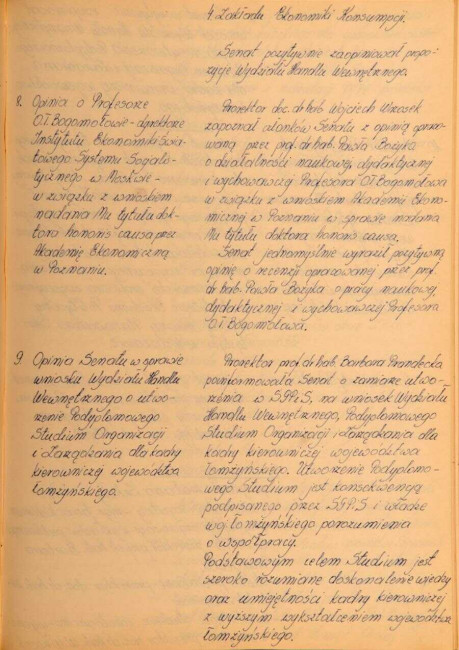 4. Zakładu Ekonomiki Konsumpcji.
Senat pozytywnie zaopiniował propo-
zycje Wydziału Handlu Wewnętrznego.
8. Opinia o Profesorze
O.T. Bogomołowie - dyrektorze
Instytutu Ekonomiki Świa-
towego Systemu Socjali-
stycznego w Moskwie -
w związku z wnioskiem
nadania Mu tytułu dok-
tora honoris causa przez
Akademię Ekonomiczną
w Poznaniu.
Prorektor doc. dr hab. Wojciech Wrzosek
zapoznał członków Senatu z opinią opraco-
waną przez prof. dr hab. Pawła Bożyka
o działalności naukowej, dydaktycznej
i wychowawczej Profesora O.T. Bogomołowa
w związku z wnioskiem Akademii Ekono-
micznej w Poznaniu w sprawie nadania
Mu tytułu doktora honoris causa.
Senat jednomyślnie wyraził pozytywną
opinię o recenzji opracowanej przez prof.
dr hab. Pawła Bożyka o pracy naukowej,
dydaktycznej i wychowawczej Profesora
O.T. Bogomołowa.
9. Opinia Senatu w sprawie
wniosku Wydziału Handlu
Wewnętrznego o utwo-
rzenie Podyplomowego
Studium Organizacji
i Zarządzania dla kadry
kierowniczej województwa
łomżyńskiego.
Prorektor prof. dr hab. Barbara Prandecka
poinformowała Senat o zamiarze utwo-
rzenia w SGPiS, na wniosek Wydziału
Handlu Wewnętrznego, Podyplomowego
Studium Organizacji i Zarządzania dla
kadry kierowniczej województwa
łomżyńskiego. Utworzenie Podyplomo-
wego Studium jest konsekwencją
podpisanego przez SGPiS i władze
woj. łomżyńskiego porozumienia
o współpracy.
Podstawowym celem Studium jest
szeroko rozumiane doskonalenie wiedzy
oraz umiejętności kadry kierowniczej
z wyższym wykształceniem województwa
łomżyńskiego.